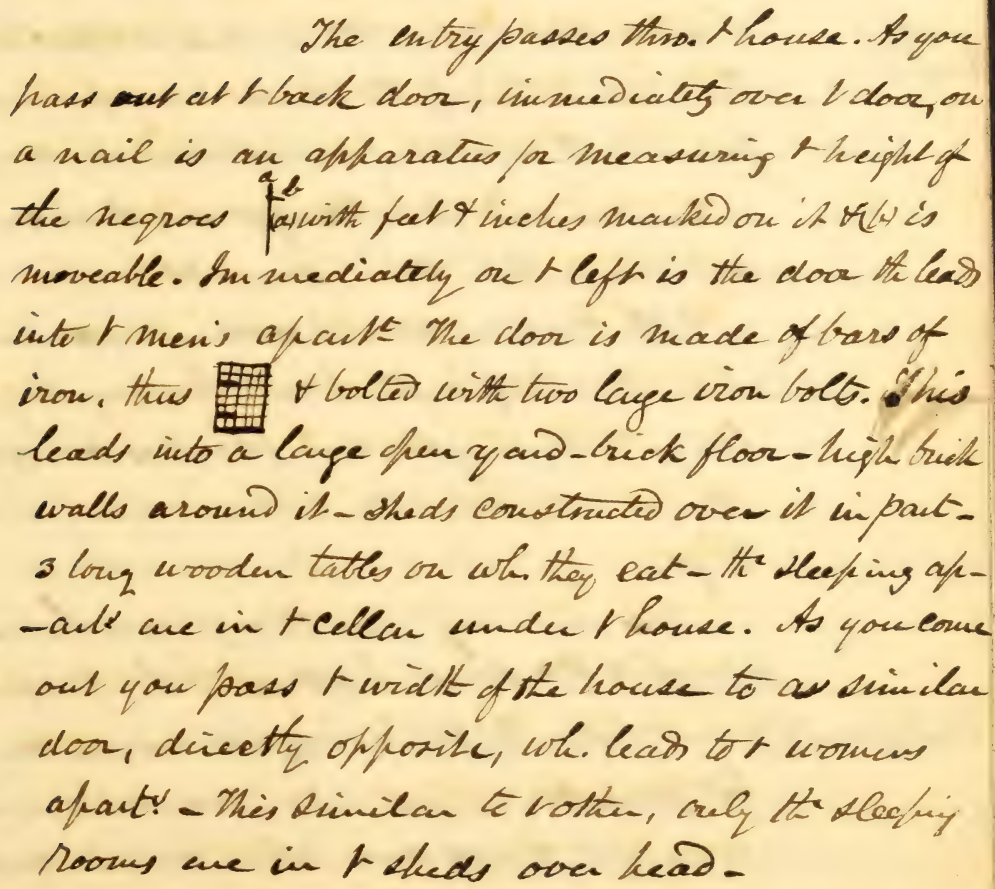 The entry passes thro. t house. As you
pass out at t back door, immediately over t door, on
a nail is an apparatus for measuring t height of
a b
the negroes (a) with feet & inches marked on it & (b) is
moveable. Immediately on t left is the door th leads
into t men's apartt The door is made of bars of
iron, thus & bolted with two large iron bolts. This
leads into a large open yard - brick floor - high brick
walls around it - sheds constructed over it in part -
3 long wooden tables on wh. they eat - the sleeping ap-
-arts are in t cellar under t house. As you come
out you pass t width of the house to a similar
door, directly opposite, wh. leads to t womens
aparts - This similar to t other, only the sleeping
rooms are in t sheds over head -